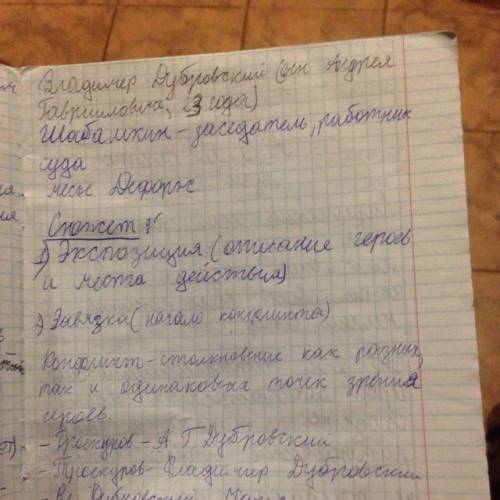 Владимир Дубровский (сын Андрея
Гавриловича, 23 года)
Шабашкин - заседатель, работник
суда
месье Дефорж
Сюжет
1) Экспозиция (описание героев
и места действия)
2) Завязка (начало конфликта)
Конфликт - столкновение как разных,
так и одинаковых точек зрения
героев.
- Троекуров - А. Г. Дубровский
- Троекуров - Владимир Дубровский
- Вл. Дубровский Маша